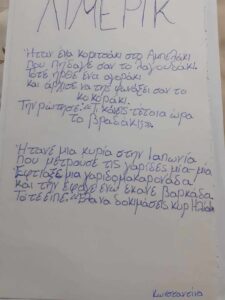 ΛΙΜΕΡΙΚ
Ήταν ένα κοριτσάκι στο Αμπελάκι
Που πήδαγε σαν το λαγουδάκι
Τότε ήρθε ένα αγοράκι
και άρχισε να της φωνάζει σαν το
κοκοράκι.
Την ρώτησε: "Τι κάνεις τέτοια ώρα
το βραδάκι;"
Ήτανε μια κυρία στην Ιαπωνία
που μέτραγε τις γαρίδες μία-μία
Έφτιαξε μια γαριδομακαρονάδα
και την έφαγε ενώ έκανε βαρκάδα
Τότε είπε: "Έλα να δοκιμάσεις κυρ Ηλία"
Κωνσταντίνα